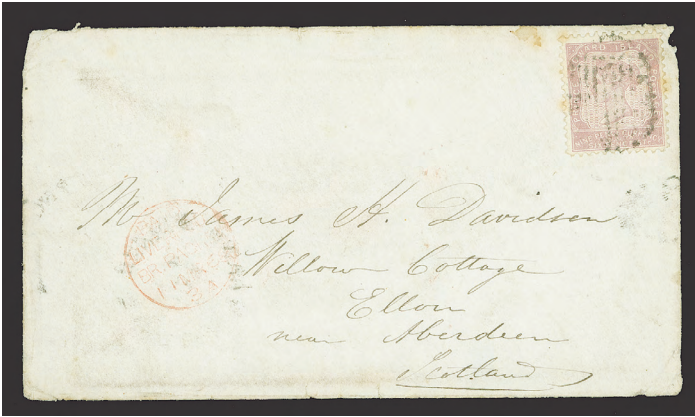 Mr James H. Davidson
Willow Cottage
Ellon
near Aberdeen
Scotland